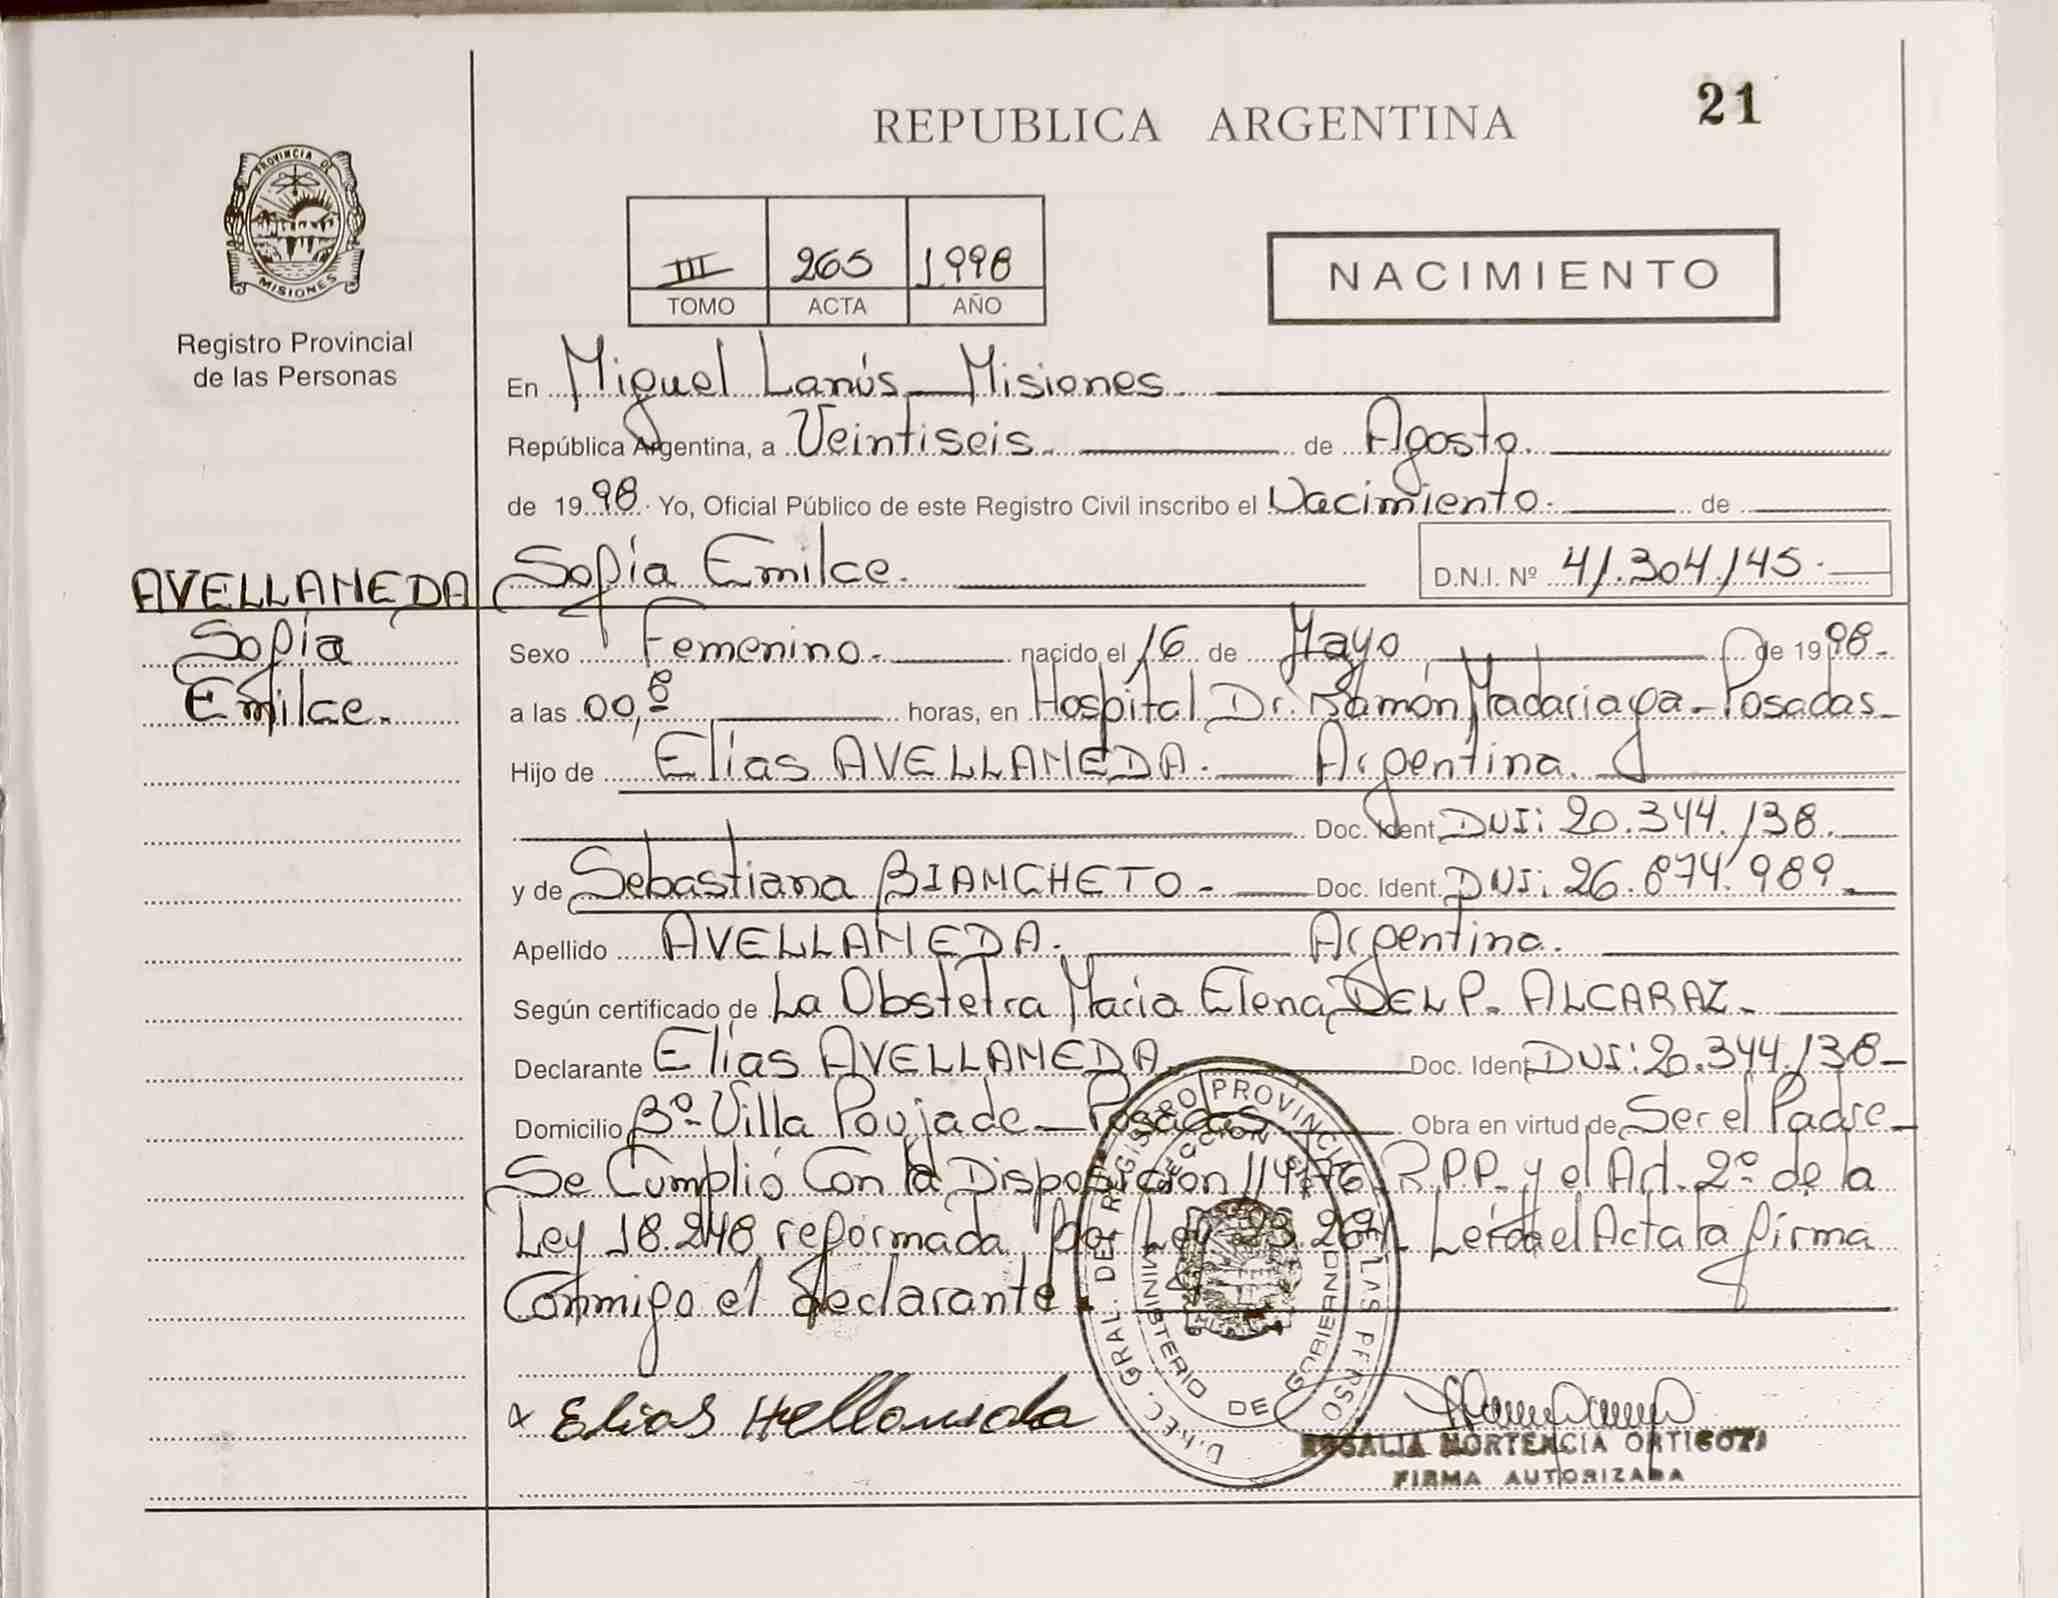 REPUBLICA ARGENTINA
21
PROVINCIA DE
MISIONES
Registro Provincial
de las Personas
III 265 1998
TOMO ACTA AÑO
NACIMIENTO
En Miguel Lanús - Misiones.
República Argentina, a Veintiseis. de Agosto.
de 1998. Yo, Oficial Público de este Registro Civil inscribo el Nacimiento. de
AVELLANEDA Sofía Emilce. D.N.I. Nº 41.304.145.
Sofía
Emilce.
Sexo Femenino. nacido el 16 de Mayo de 1998.
a las 00,8 horas, en Hospital Dr. Ramón Madariaga - Posadas
Hijo de Elías AVELLANEDA. Argentina.
Doc. Ident. DNI: 20.344.138.
y de Sebastiana BIANCHETO. Doc. Ident. DNI: 26.874.989.
Apellido AVELLANEDA. Argentina.
Según certificado de La Obstetra Maria Elena DEL P. ALCARAZ.
Declarante Elías AVELLANEDA. Doc. Ident. DNI: 20.344.138
Domicilio Bº Villa Poujade - Posadas Obra en virtud de Ser el Padre
Se Cumplió Con la Disposición 114/76 R.P.P. y el Art. 2º de la
Ley 18.248 reformada por Ley 23.264. Leída el Acta la firma
Conmigo el declarante.
DIREC. GRAL. DEL REGISTRO PROVINCIAL LAS PERSO
MINISTERIO DE GOBIERNO
x Elias
ROSALIA HORTENCIA
FIRMA AUTORIZADA